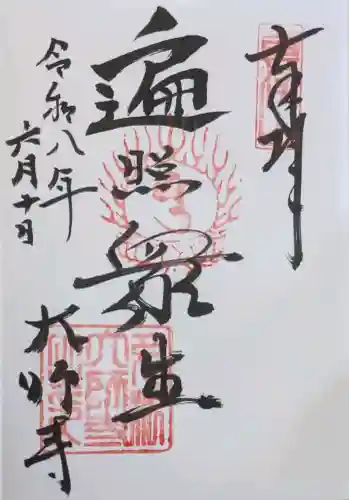 奉拝
遍照衆生
令和八年
六月十日
大師寺